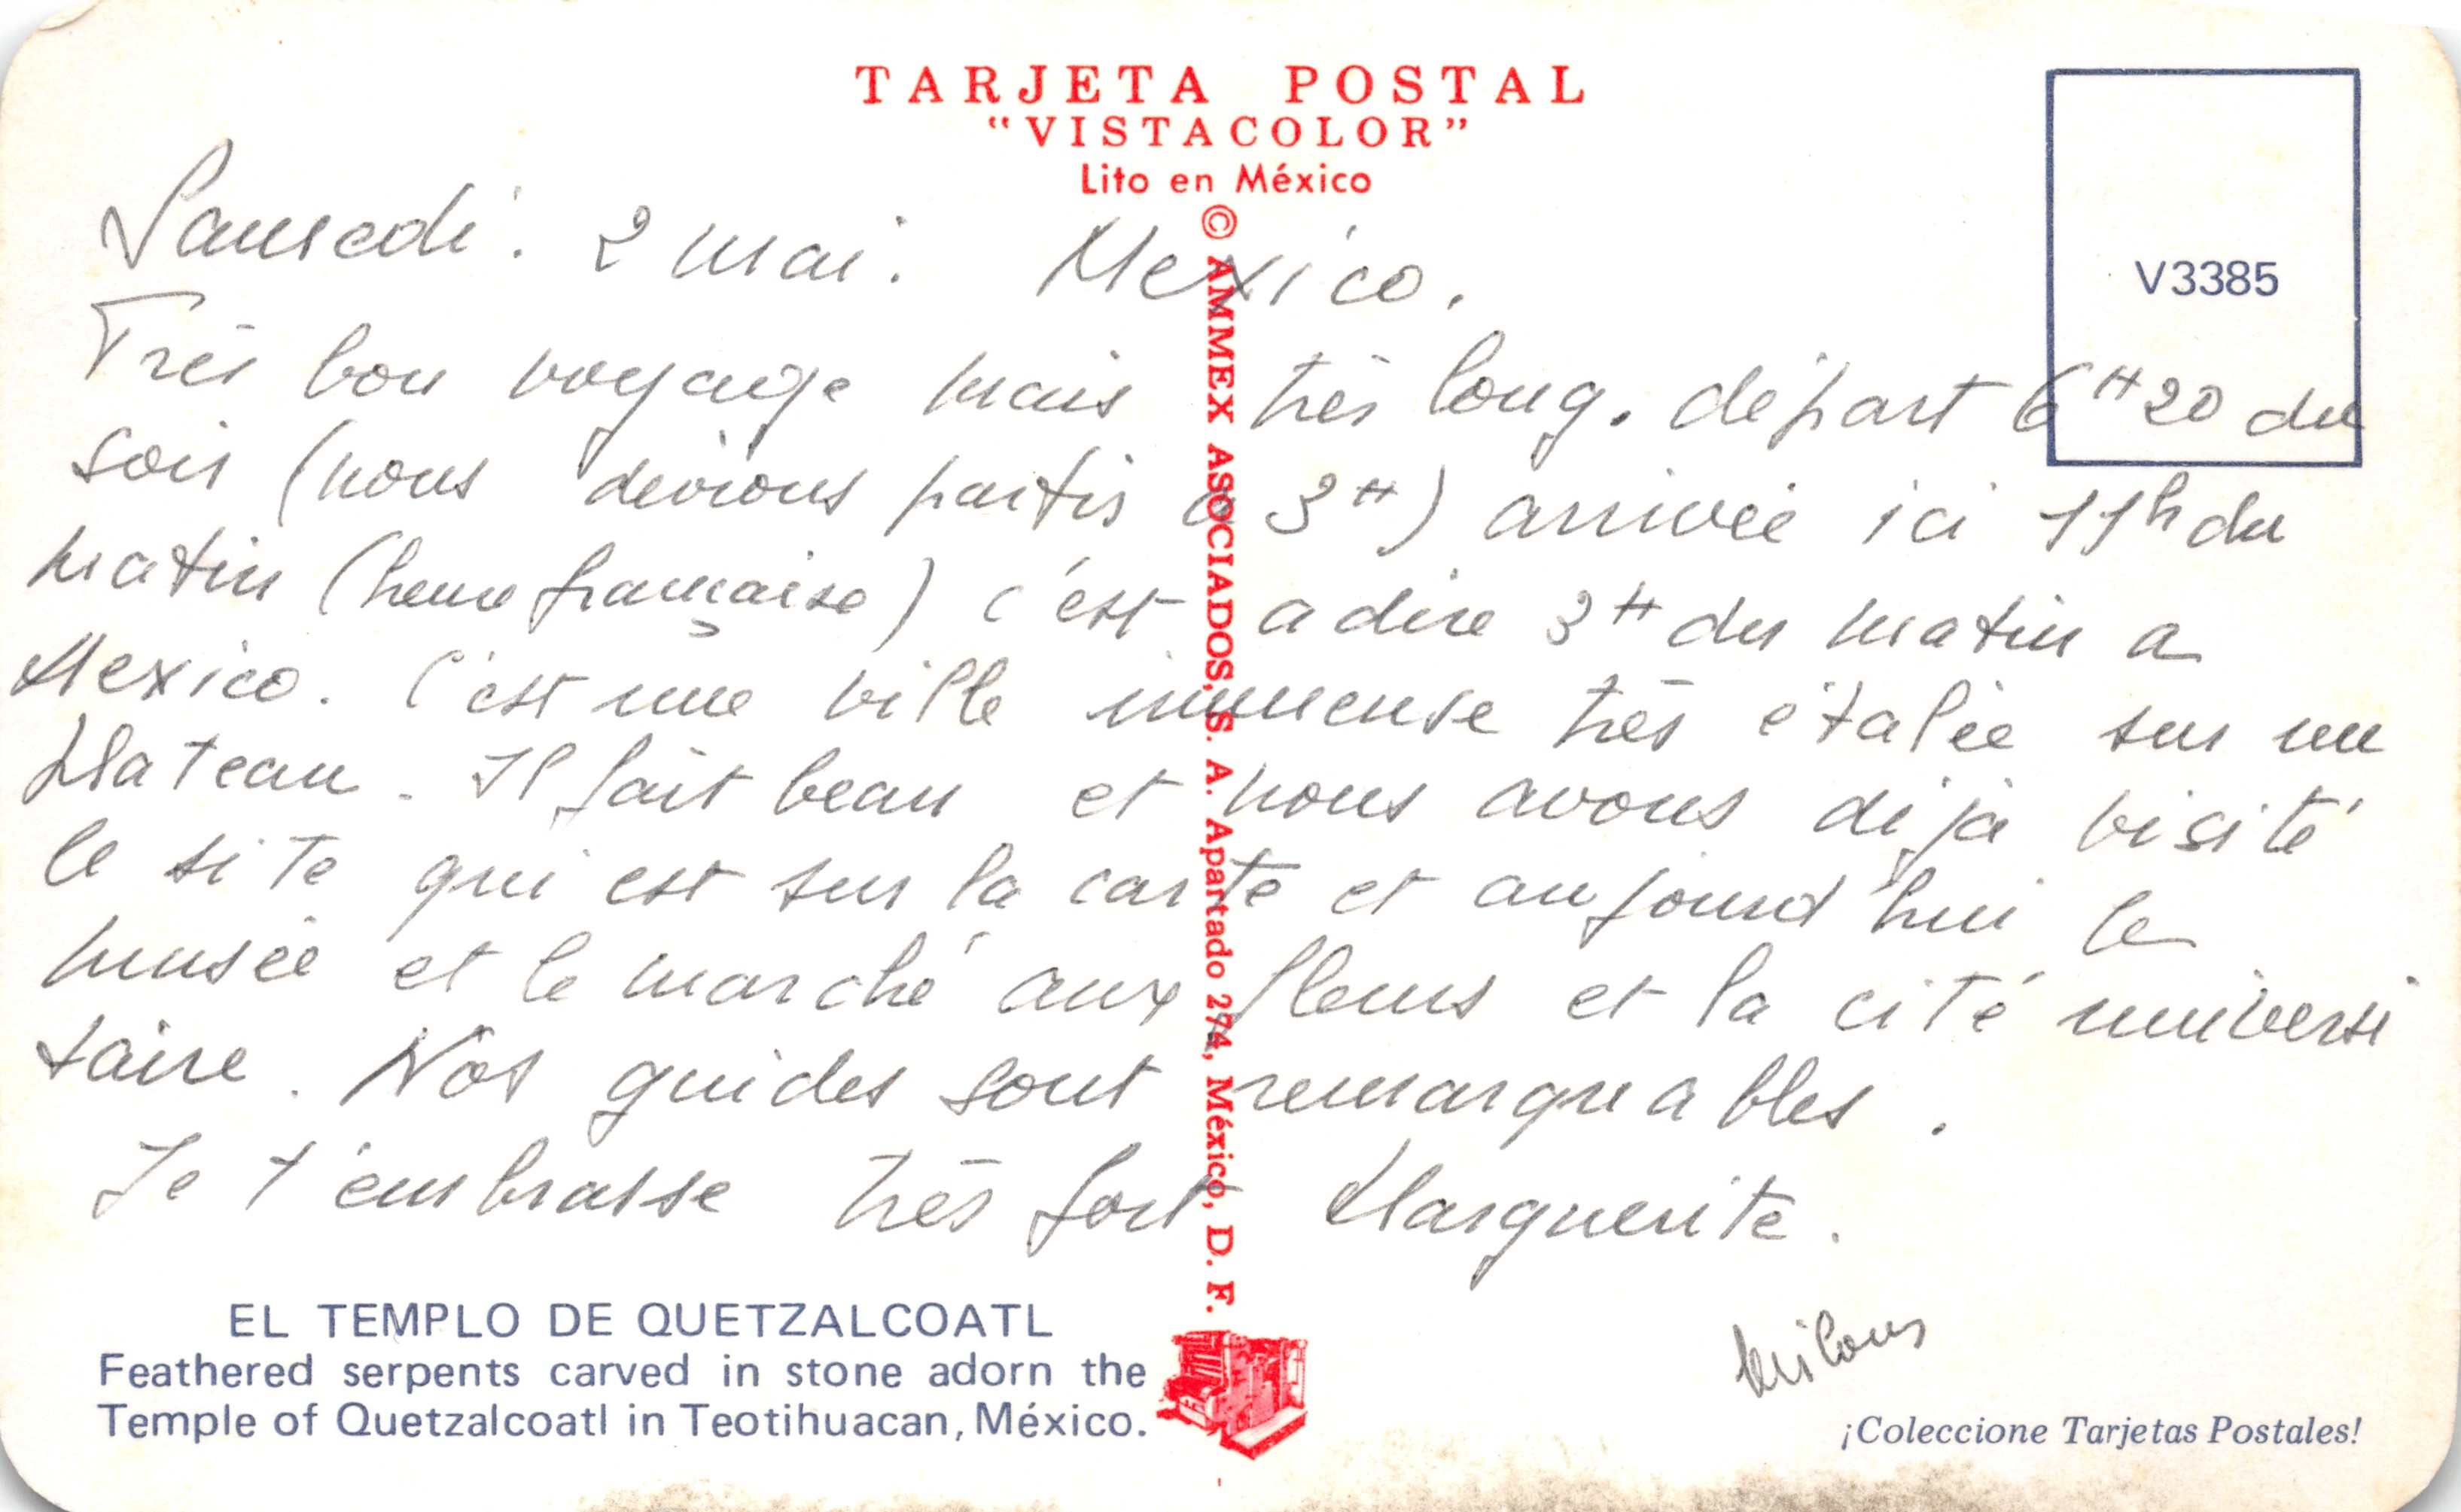 TARJETA POSTAL
"VISTACOLOR"
Lito en México
V3385
Samedi. 2 mai. Mexico.
Très bon voyage mais très long. départ 6H20 du
soir (nous devions partir à 3H) arrivée ici 11h du
matin (heure française) c'est a dire 3H du matin a
Mexico. C'est une ville immense très étalée sur un
plateau. Il fait beau et nous avons déjà visité
le site qui est sur la carte et aujourd'hui le
musée et le marché aux fleurs et la cité universi
taire. Nos guides sont remarquables.
Je t'embrasse très fort Marguerite.
© AMMEX ASOCIADOS, S. A. Apartado 274, México, D. F.
EL TEMPLO DE QUETZALCOATL
Feathered serpents carved in stone adorn the
Temple of Quetzalcoatl in Teotihuacan, México.
¡Coleccione Tarjetas Postales!